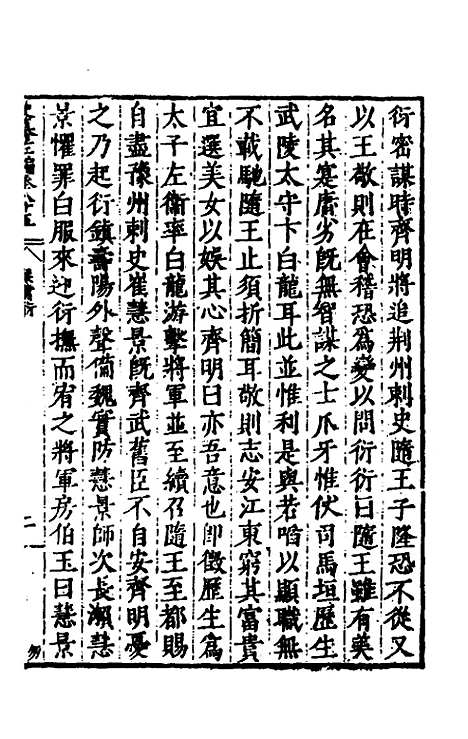 衍密謀時齊明將追荆州刺史隨王子隆恐不從又
以王敬則在會稽恐為變以問衍衍曰隨王雖有美
名其寔庸劣旣無智謀之士爪牙惟仗司馬垣歷生
武陵太守卞白龍耳此並惟利是與若啗以顯職無
不載馳隨王止須折簡耳敬則志安江東窮其富貴
宜選美女以娛其心齊明曰亦吾意也卽徵歷生為
太子左衞率白龍游擊將軍並至續召隨王至都賜
自盡豫州刺史崔慧景旣齊武舊臣不自安齊明憂
之乃起衍鎮壽陽外聲備魏實防慧景師次長瀨慧
景懼罪白服來迎衍撫而宥之將軍房伯玉曰慧景
二